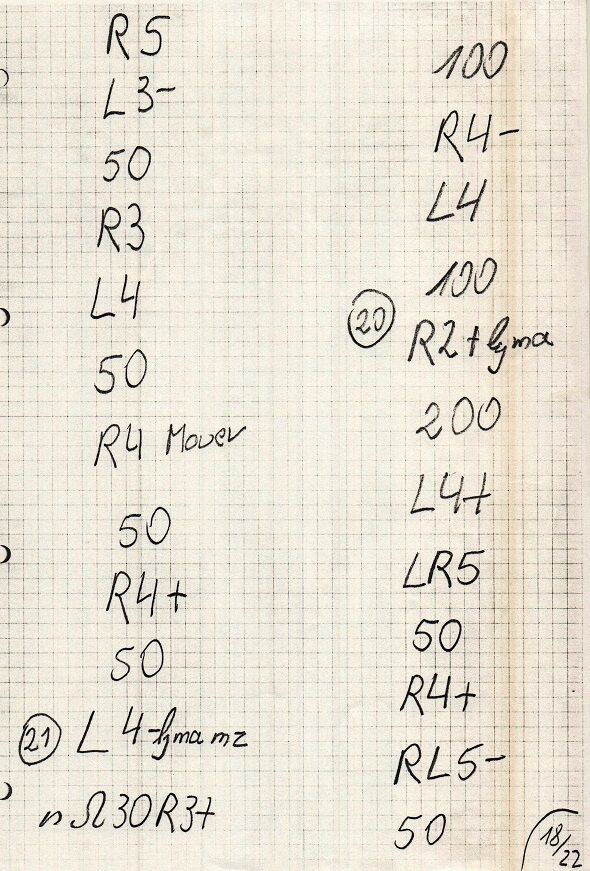 R5
L3-
50
R3
L4
50
R4 Mauer
50
R4+
50
21 L4-
Ω30R3+
100
R4-
L4
100
20 R2+
200
L4+
LR5
50
R4+
RL5-
50
18/22